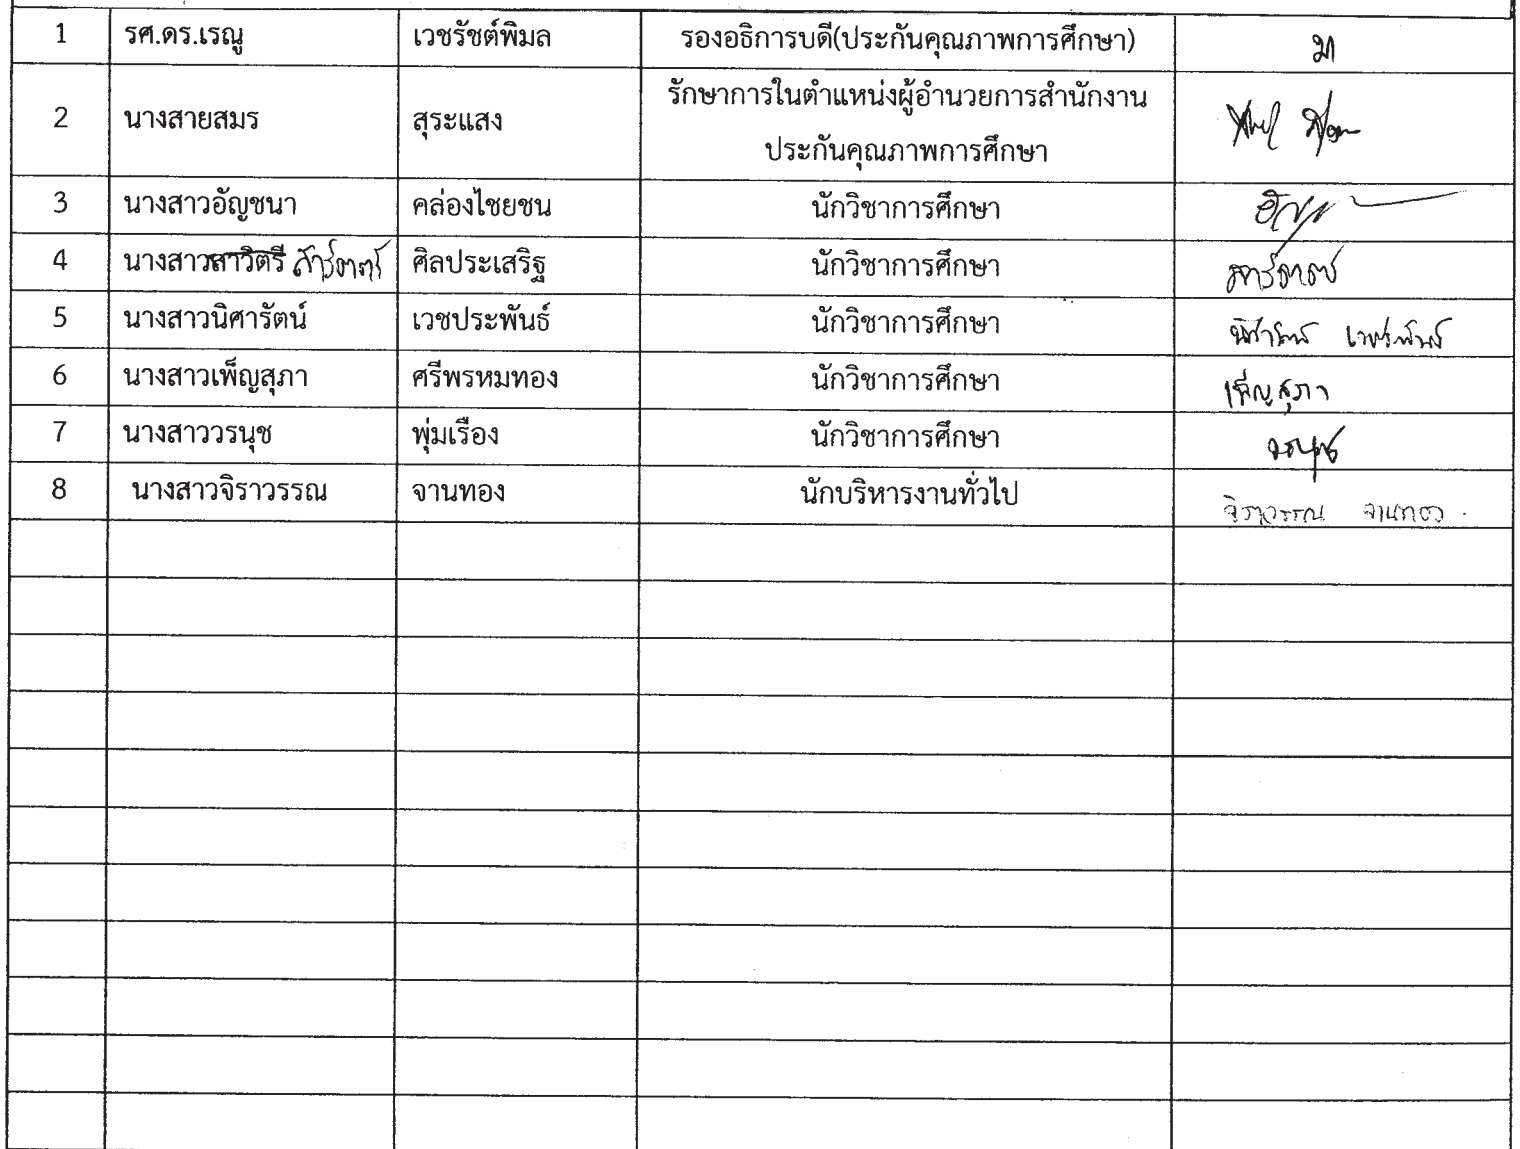 1 รศ.ดร.เรณู เวชรัชต์พิมล รองอธิการบดี(ประกันคุณภาพการศึกษา) มา
2 นางสายสมร สุระแสง รักษาการในตำแหน่งผู้อำนวยการสำนักงาน
ประกันคุณภาพการศึกษา
3 นางสาวอัญชนา คล่องไชยชน นักวิชาการศึกษา
4 นางสาวสาวิตรี ศิลประเสริฐ นักวิชาการศึกษา
5 นางสาวนิศารัตน์ เวชประพันธ์ นักวิชาการศึกษา นิศารัตน์ เวชประพันธ์
6 นางสาวเพ็ญสุภา ศรีพรหมทอง นักวิชาการศึกษา เพ็ญสุภา
7 นางสาววรนุช พุ่มเรือง นักวิชาการศึกษา วรนุช
8 นางสาวจิราวรรณ จานทอง นักบริหารงานทั่วไป จิราวรรณ จานทอง